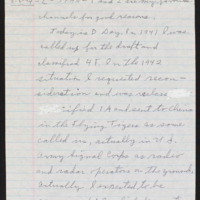 channels for good reasons.
Today is D Day. In 1941 I was
called up for the draft and
classified 4F. In the 1942
situation I requested recon-
sideration and was reclass
ified 1A and sent to China
in the Flying Tigers as some
called us, actually in U.S.
Army Signal Corps as radio
and radar operators on the ground.
Actually, I expected to be